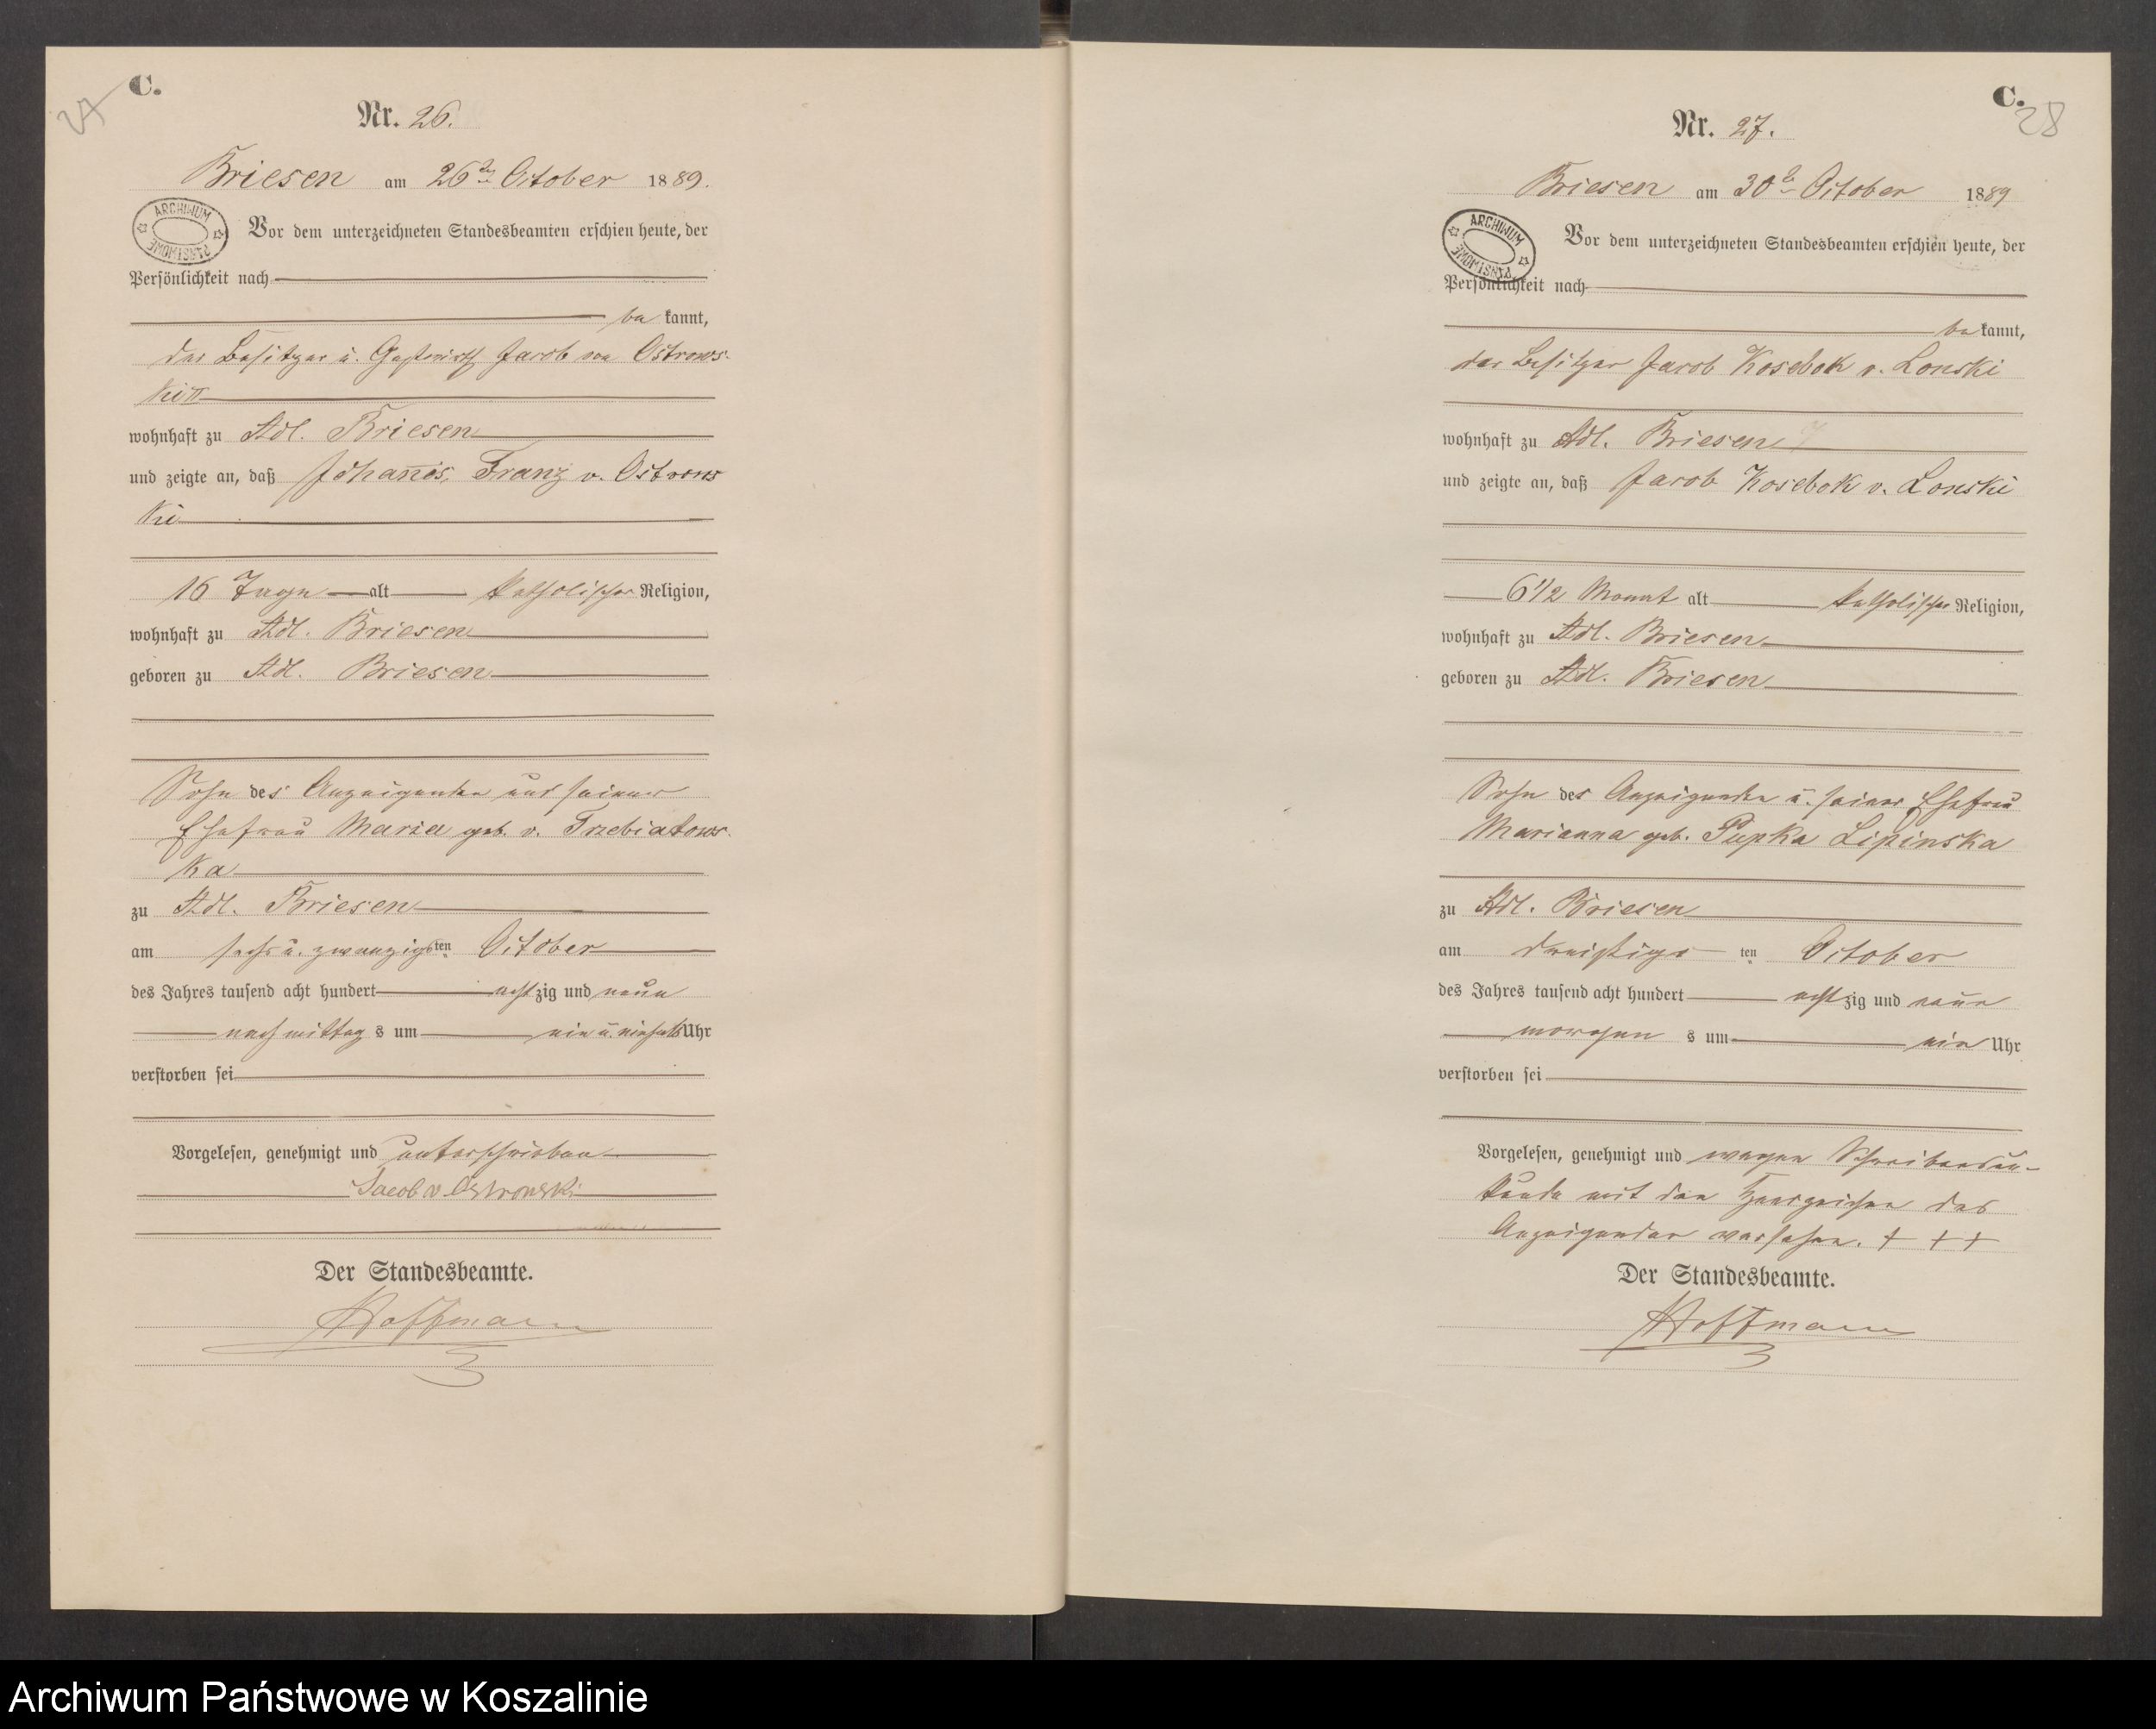 C.
27
Nr. 26.
Briesen am 26ten October 1889.
ARCHIWUM PAŃSTWOWE
Vor dem unterzeichneten Standesbeamten erschien heute, der
Persönlichkeit nach
be kannt,
der Besitzer u. Gastwirth Jacob von Ostrows-
ki II
wohnhaft zu Adl. Briesen
und zeigte an, daß Johannes, Franz v. Ostrows
ki
16 Tage alt katholischer Religion,
wohnhaft zu Adl. Briesen
geboren zu Adl. Briesen
Sohn des Anzeigenden und seiner
Ehefrau Maria geb. v. Trzebiatows-
ka
zu Adl. Briesen
am sechs u. zwanzigsten October
des Jahres tausend acht hundert achtzig und neun
nachmittags um ein u. einhalb Uhr
verstorben sei
Vorgelesen, genehmigt und unterschrieben
Jacob v Ostrowski
Der Standesbeamte.
Hoffmann
C.
28
Nr. 27.
Briesen am 30t October 1889
ARCHIWUM PAŃSTWOWE
Vor dem unterzeichneten Standesbeamten erschien heute, der
Persönlichkeit nach
be kannt,
der Besitzer Jacob Kosebok v. Lonski
wohnhaft zu Adl. Briesen
und zeigte an, daß Jacob Kosebok v. Lonski
6 1/2 Monat alt katholischer Religion,
wohnhaft zu Adl. Briesen
geboren zu Adl. Briesen
Sohn des Anzeigenden u. seiner Ehefrau
Marianna geb. Pupka Lipinska
zu Adl. Briesen
am dreißigsten October
des Jahres tausend acht hundert achtzig und neun
morgens um ein Uhr
verstorben sei
Vorgelesen, genehmigt und wegen Schreibensun-
kunde mit den Handzeichen des
Anzeigenden versehen. + + +
Der Standesbeamte.
Hoffmann
Archiwum Państwowe w Koszalinie